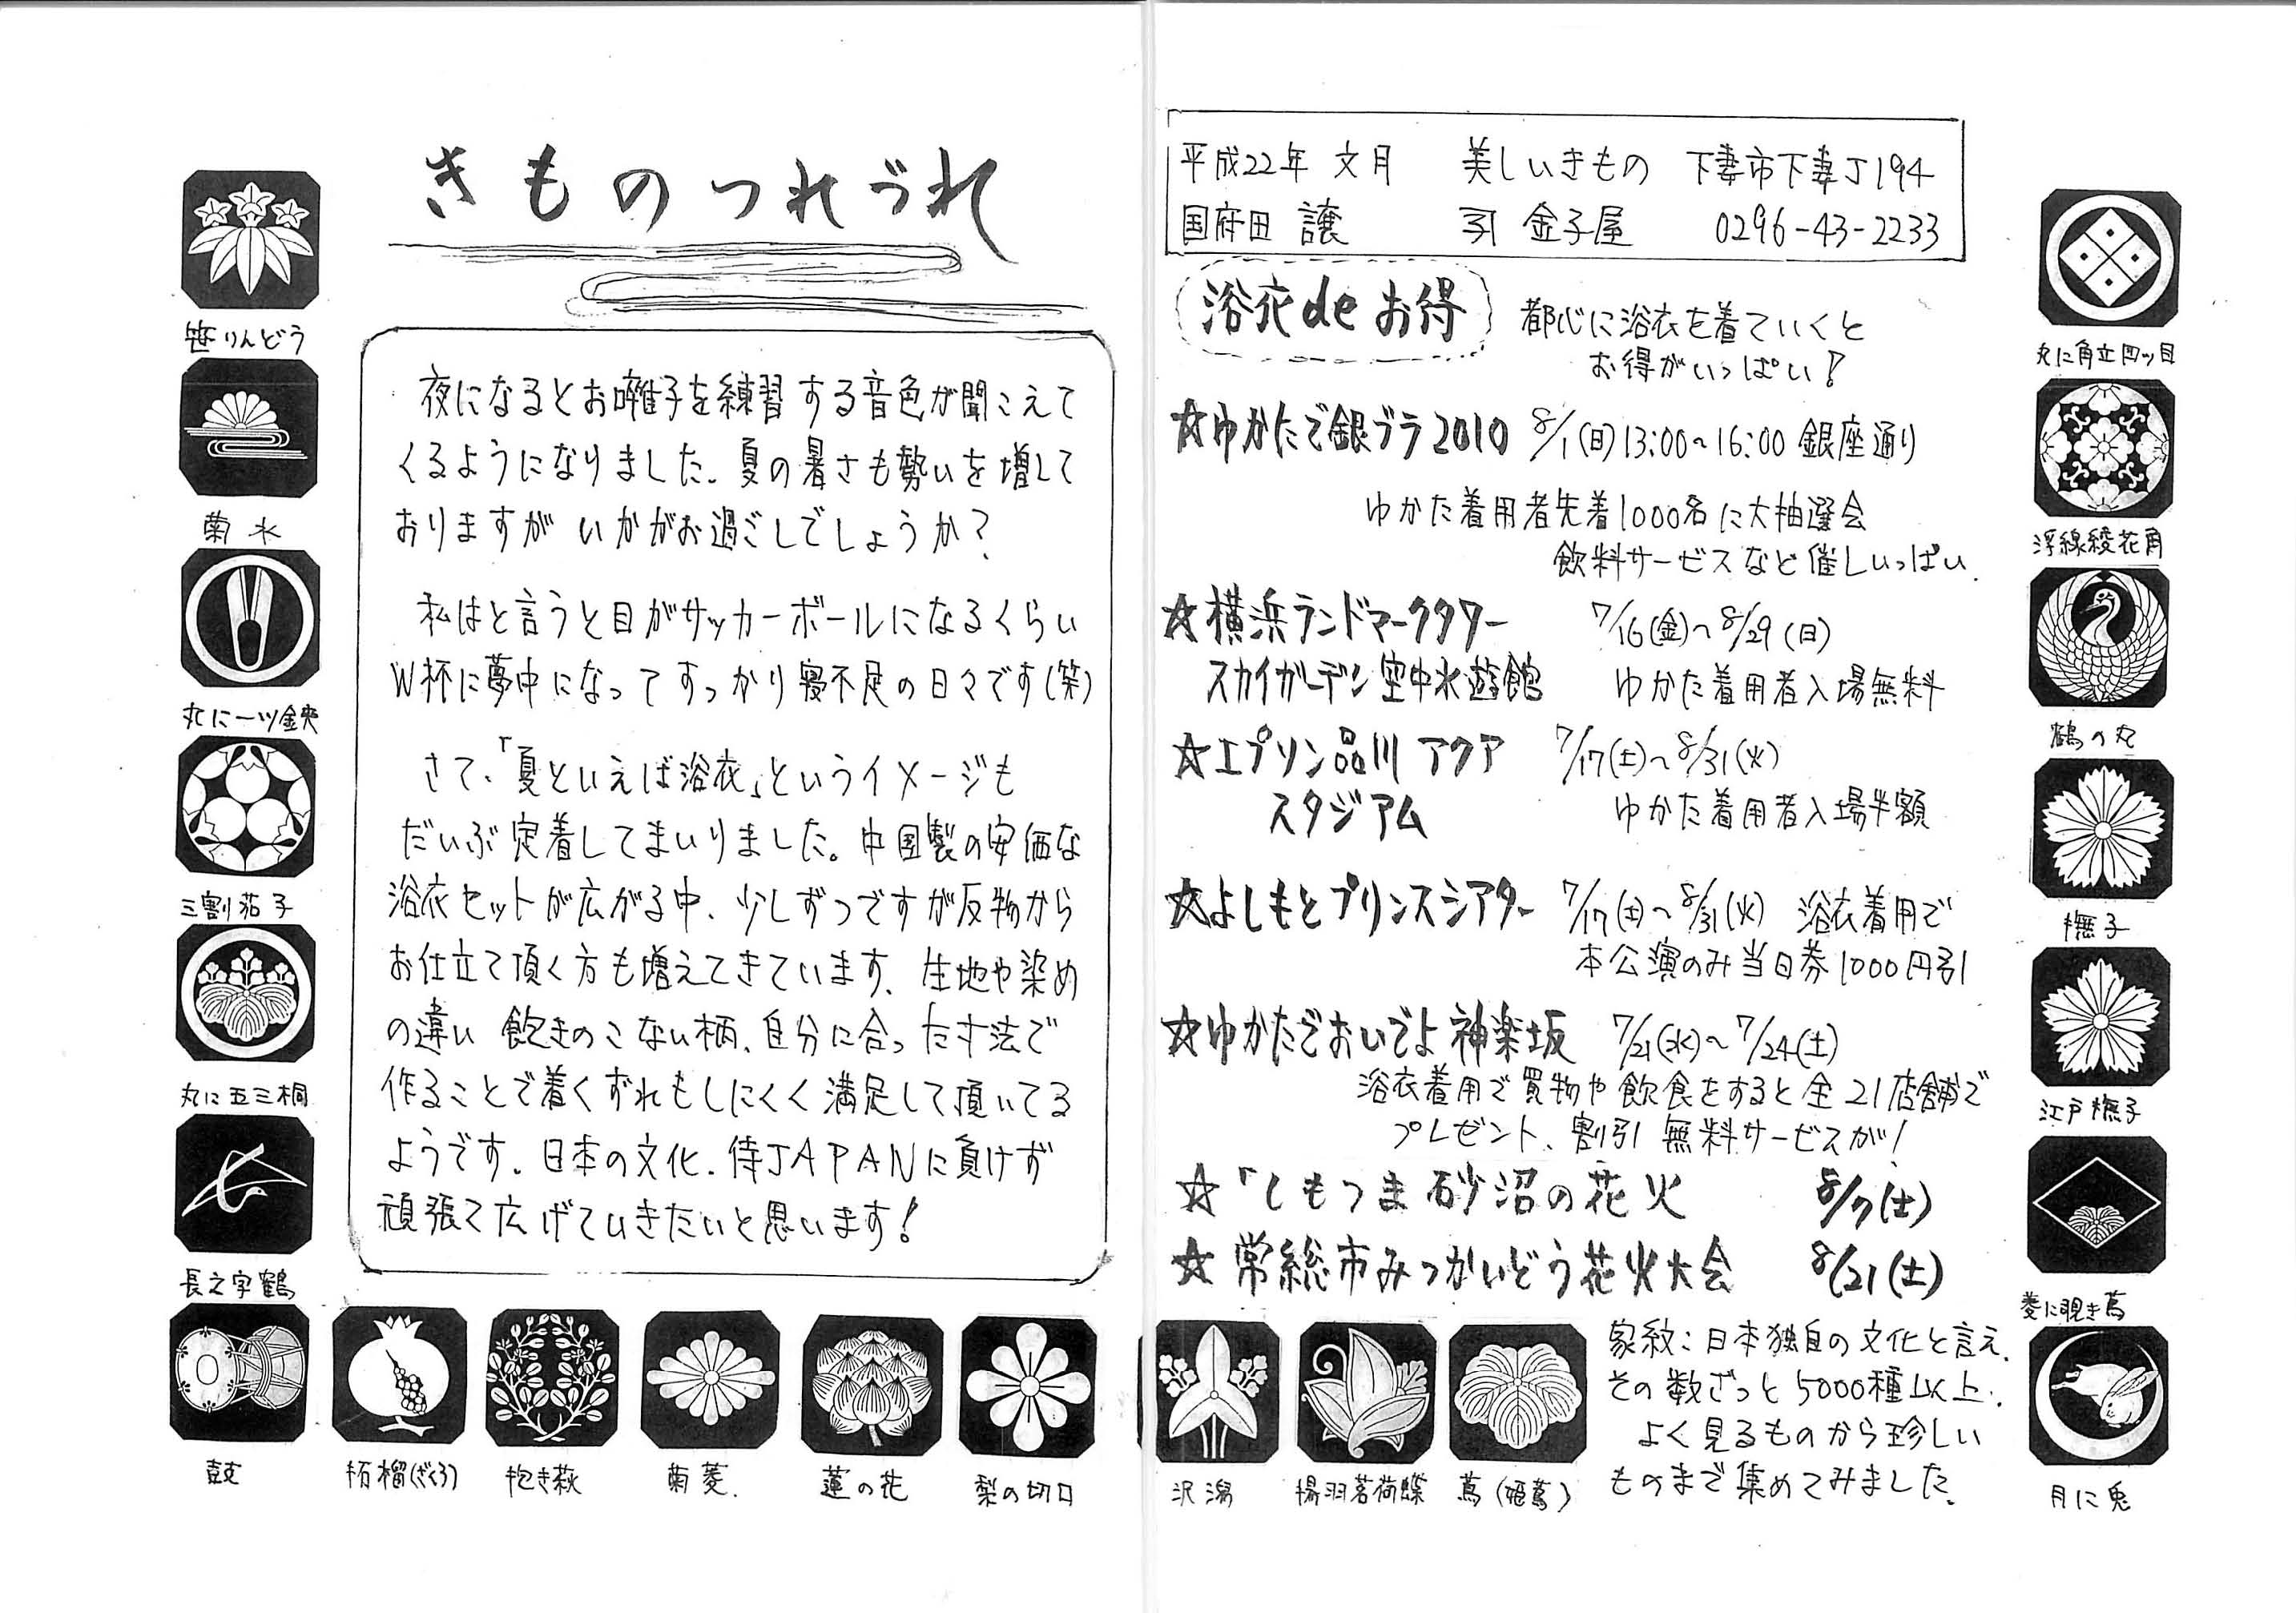 きものつれづれ
夜になるとお囃子を練習する音色が聞こえて
くるようになりました。夏の暑さも勢いを増して
おりますが いかがお過ごしでしょうか?
私はと言うと目がサッカーボールになるくらい
W杯に夢中になってすっかり寝不足の日々です(笑)
さて、「夏といえば浴衣」というイメージも
だいぶ定着してまいりました。中国製の安価な
浴衣セットが広がる中、少しずつですが反物から
お仕立て頂く方も増えてきています、生地や染め
の違い 飽きのこない柄、自分に合った寸法で
作ることで着くずれもしにくく満足して頂いてる
ようです。日本の文化、侍JAPANに負けず
頑張て広げていきたいと思います!
笹りんどう
菊水
丸に一ツ鋏
三割茄子
丸に五三桐
長之字鶴
鼓
柘榴(ざくろ)
抱き萩
菊菱.
蓮の花
梨の切口
平成22年 文月 美しいきもの 下妻市下妻J194
国府田 譲 金子屋 0296-43-2233
浴衣deお得
都心に浴衣を着ていくと
お得がいっぱい!
☆ゆかたで銀ブラ2010 8/1(日)13:00~16:00 銀座通り
ゆかた着用者先着1000名に大抽選会
飲料サービスなど催しいっぱい.
☆横浜ランドマークタワー 7/16(金)~8/29(日)
スカイガーデン空中水遊館 ゆかた着用者入場無料
☆エプソン品川 アクア 7/17(土)~8/31(火)
スタジアム ゆかた着用者入場半額
☆よしもとプリンスシアター 7/17(土)~8/31(火) 浴衣着用で
本公演のみ当日券1000円引
☆ゆかたでおいでよ神楽坂 7/21(水)~7/24(土)
浴衣着用で買物や飲食をすると全21店舗で
プレゼント、割引 無料サービスが!
☆「しもつま砂沼の花火 8/7(土)
☆ 常総市みつかいどう花火大会 8/21(土)
沢潟
揚羽茗荷蝶
蔦(姫蔦)
家紋:日本独自の文化と言え、
その数ざっと5000種以上.
よく見るものから珍しい
ものまで集めてみました。
丸に角立四ッ目
浮線綾花角
鶴の丸
撫子
江戸撫子
菱に覗き蔦
月に兎